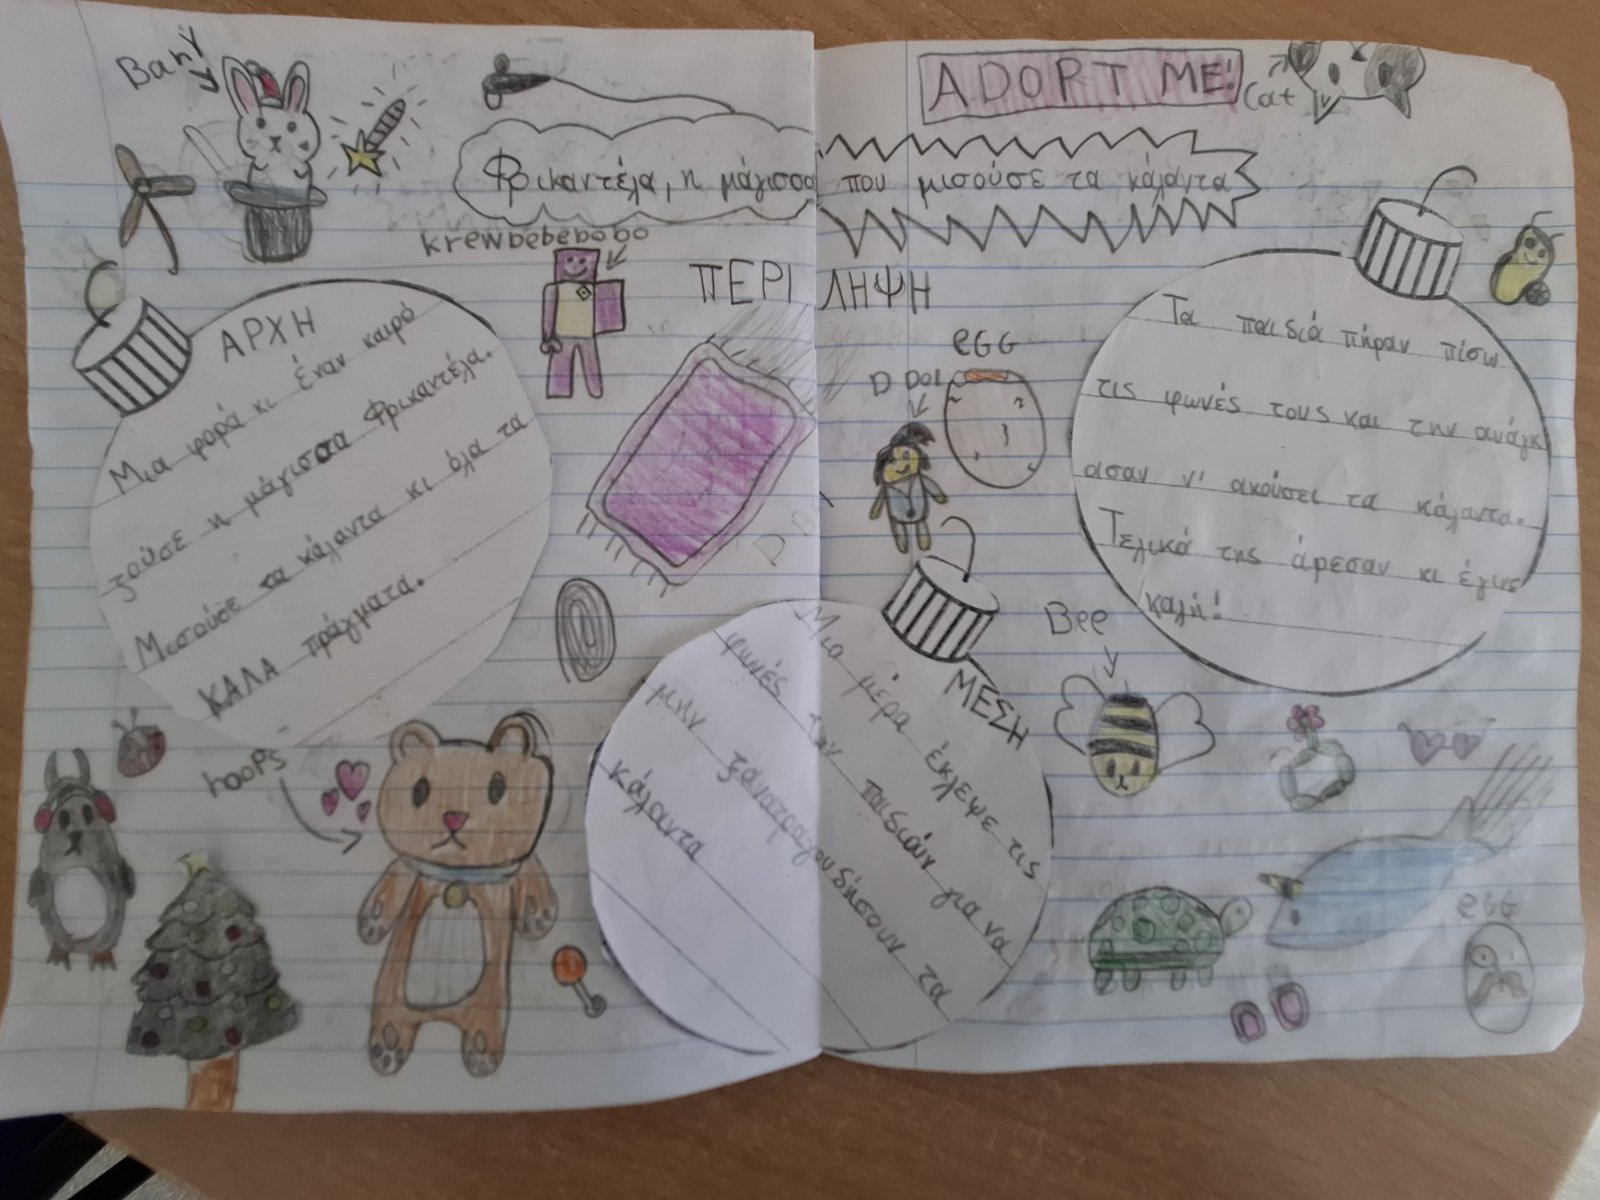 Bany
ADOPT ME!
Cat
Φρικαντέλα, η μάγισσα που μισούσε τα κάλαντα
krewbebebobo
ΠΕΡΙΛΗΨΗ
ΑΡΧΗ
Μια φορά κι έναν καιρό
ζούσε η μάγισσα Φρικαντέλα.
Μισούσε τα κάλαντα κι όλα τα
ΚΑΛΑ πράγματα.
eGG
D DOL
hoops
ΜΕΣΗ
Μια μέρα έκλεψε τις
φωνές των παιδιών για να
μην ξανατραγουδήσουν τα
κάλαντα
Bee
Τα παιδιά πήραν πίσω
τις φωνές τους και την ανάγκ
ασαν ν' ακούσει τα κάλαντα.
Τελικά της άρεσαν κι έγινε
καλή!
eGG